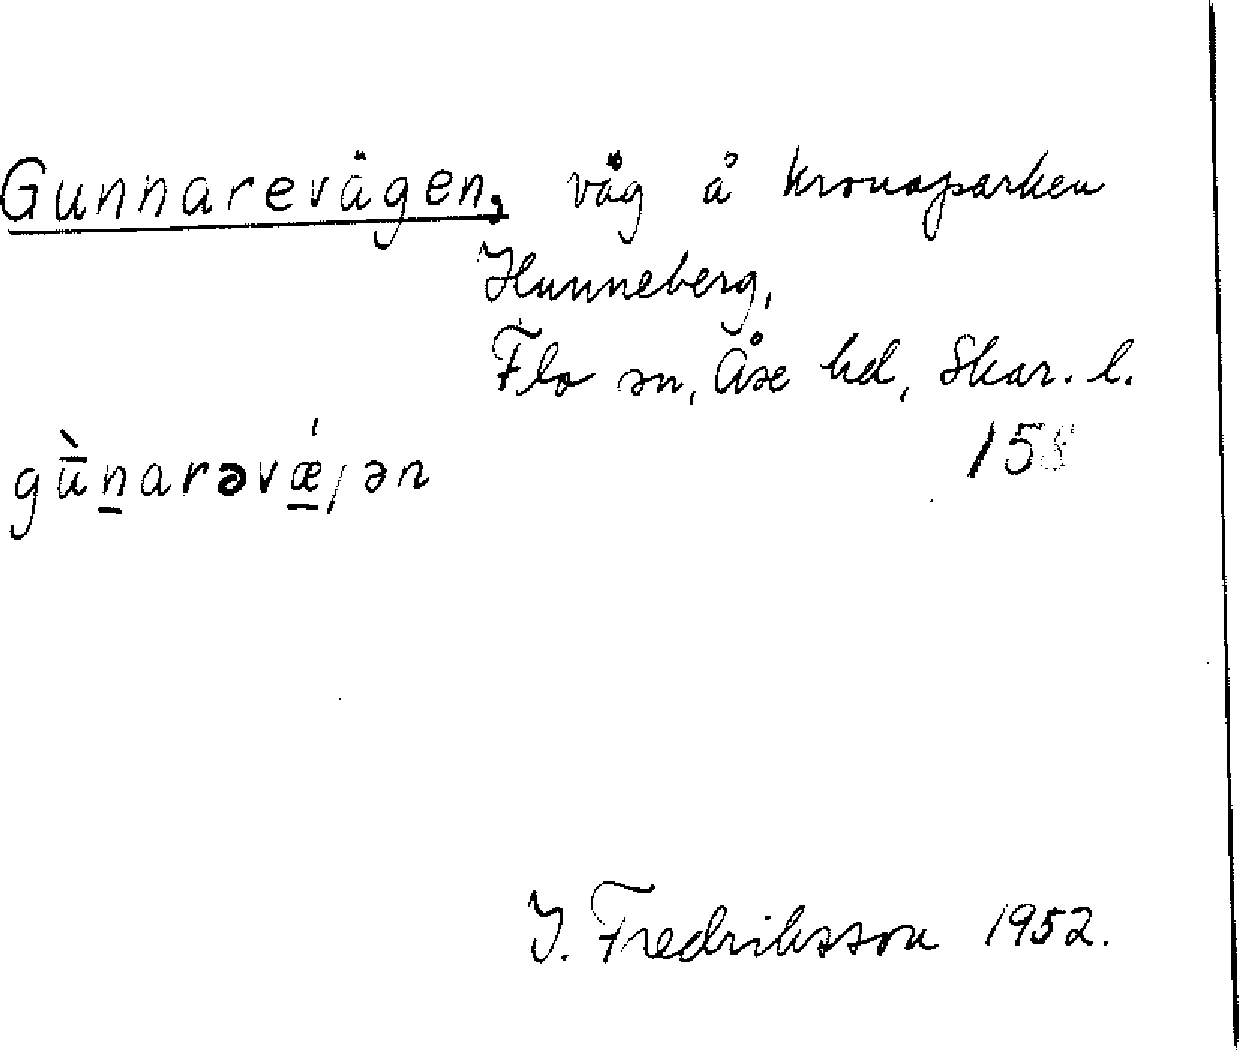 Gunnarevägen, väg å kronoparken
Hunneberg,
Flo sn, Åse hd, Skar. l.
158
gùnarəvǽjən
I. Fredriksson 1952.